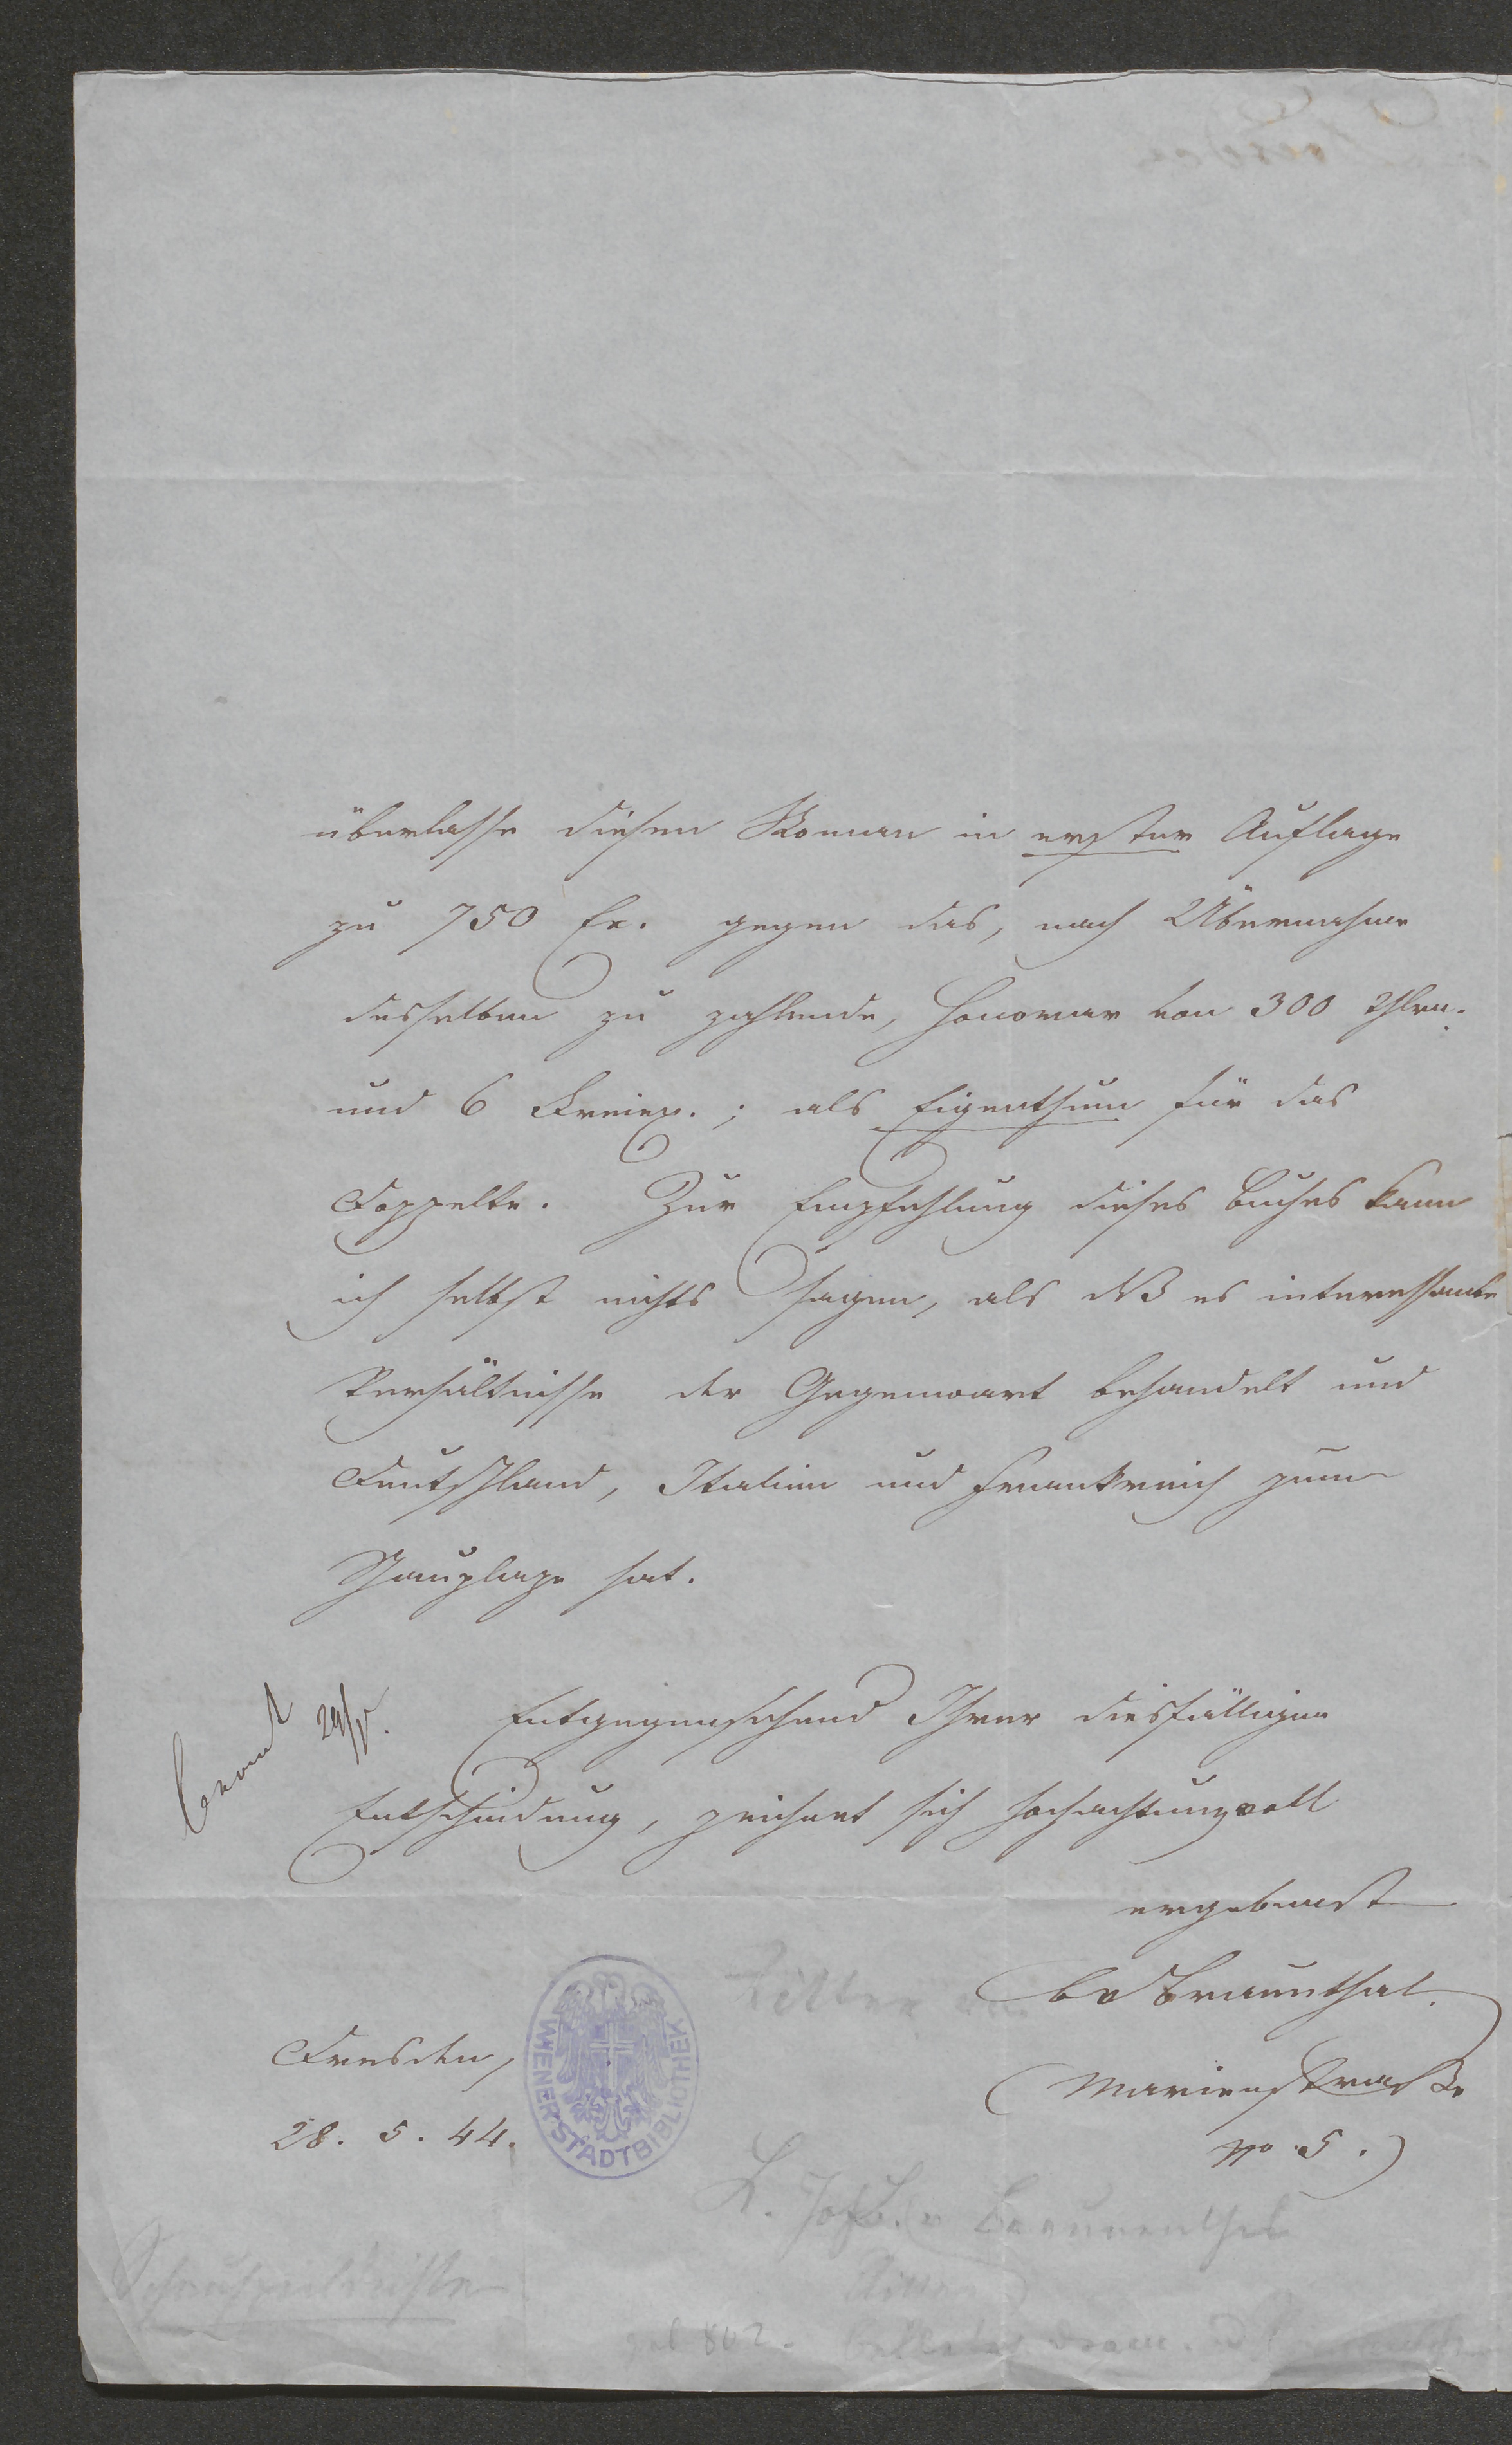 überlasse diesen Roman in erster Auflage
zu 750 Ex. gegen das, nach Übernahme
desselben zu zahlende, Honorar von 300 Thlrn.
und 6 Freiex.; als Eigenthum für das
Doppelte. Zur Empfehlung dieses Buches kann
ich selbst nichts sagen, als daß es interessante
Verhältnisse der Gegenwart behandelt und
Deutschland, Italien und Frankreich zum
Schauplaze hat.
29/V.
Entgegensehend Ihrer diesfälligen
Entscheidung, zeichnet sich hochachtungsvoll
ergebenst
Braunthal.
Dresden,
(Marienstraße
28. 5. 44.
No 5.)
WIENER STADTBIBLIOTHEK
Ritter
Braunenthal
Schauspieldichter
geb 802.